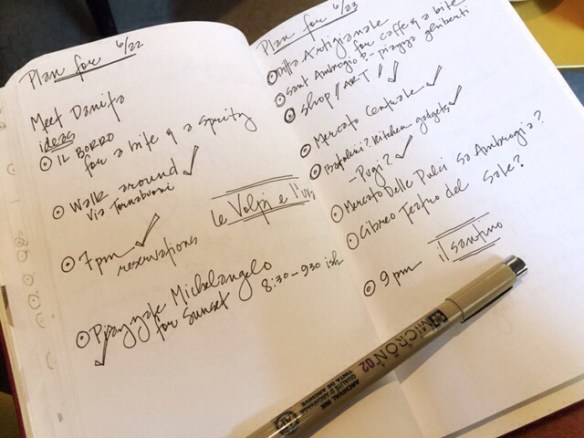 Plan for 6/22
Meet Danita
ideas
IL BORRO
for a bite & a spritz
Walk around
Via Tornabuoni
7pm
reservations
Le Volpi e l'uva
Piazzale Michelangelo
for Sunset 8:30-930 ish
Plan for 6/23
Ditta Artigianale
Sant Ambrogio for caffe & a bite
- piazza ghiberti
Shop / ART!
Mercato Centrale
Bartolini? kitchen gadgets
- Pugi?
Mercato Delle Pulci Sa Ambrogia?
Cibreo Teatro del Sale?
9 pm il santino
MICRON 02
ARCHIVAL INK